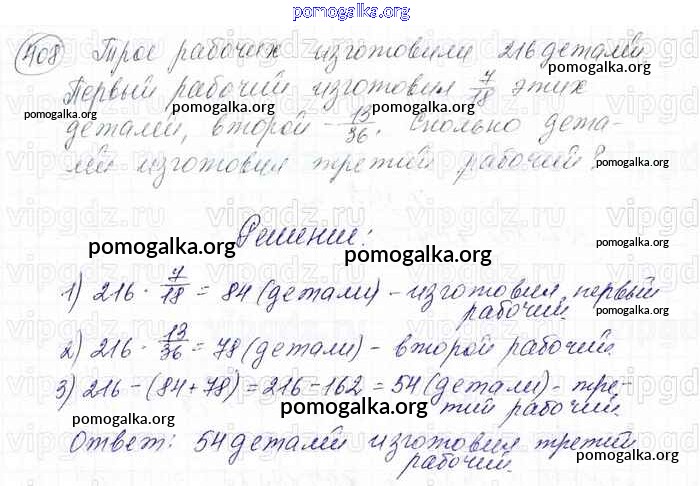 pomogalka.org
408 Трое рабочих изготовили 216 деталей
Первый рабочий изготовил 7/18 этих
pomogalka.org pomogalka.org
деталей, второй – 13/36. Сколько дета-
лей изготовил третий рабочий?
pomogalka.org pomogalka.org
vipgdz.ru vipgdz.ru vipgdz.ru
Решение:
pomogalka.org pomogalka.org pomogalka.org
1) 216 · 7/18 = 84 (детали) – изготовил первый
рабочий.
pomogalka.org pomogalka.org
2) 216 · 13/36 = 78 (детали) – второй рабочий.
3) 216 – (84 + 78) = 216 – 162 = 54 (детали) – тре-
тий рабочий.
pomogalka.org pomogalka.org pomogalka.org
Ответ: 54 деталей изготовил третий
рабочий.
pomogalka.org pomogalka.org